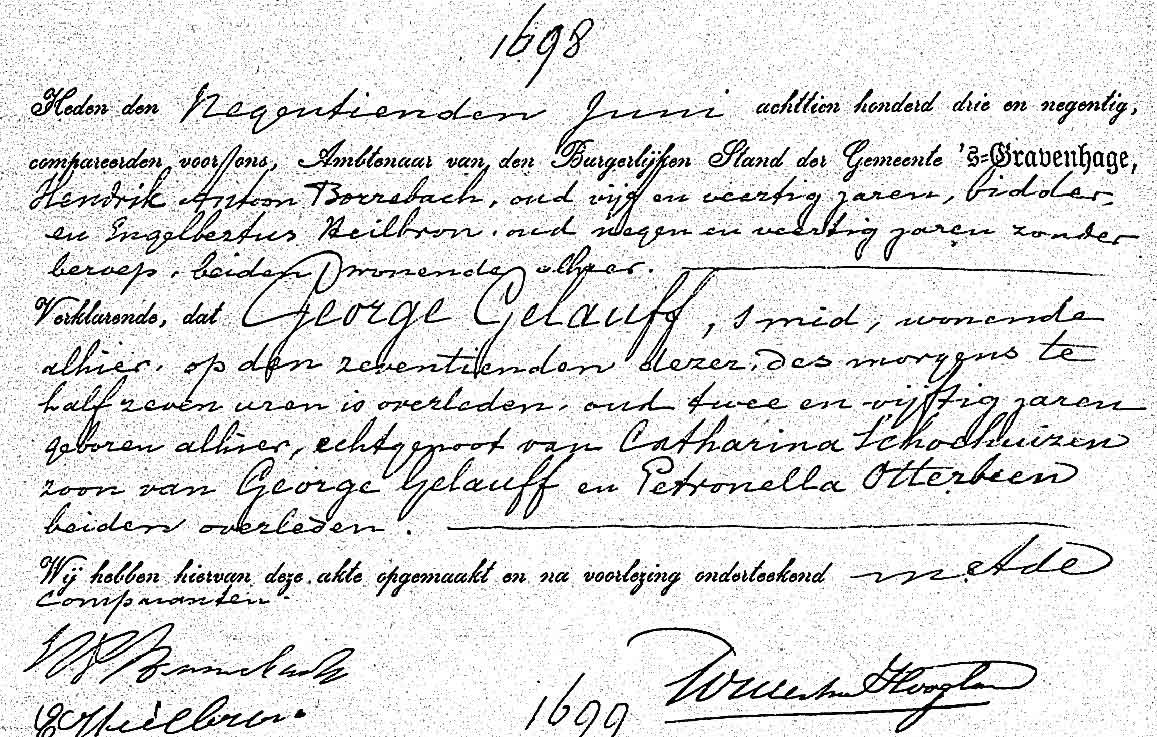 1698
Heden den Negentienden Juni achttien honderd drie en negentig,
compareerden voor ons, Ambtenaar van den Burgerlijken Stand der Gemeente 's=Gravenhage,
Hendrik Antoon Borrebach, oud vijf en veertig jaren, bidder,
en Engelbertus Heilbron, oud negen en veertig jaren zonder
beroep, beiden wonende alhier.
Verklarende, dat George Gelauff, smid, wonende
alhier, op den zeventienden dezer, des morgens te
half zeven uren is overleden, oud twee en vijftig jaren
geboren alhier, echtgenoot van Catharina Schoehuizen
zoon van George Gelauff en Petronella Otterbeen
beiden overleden.
Wij hebben hiervan deze akte opgemaakt en na voorlezing onderteekend met de
comparanten.
Borrebach
E Heilbron.
1699